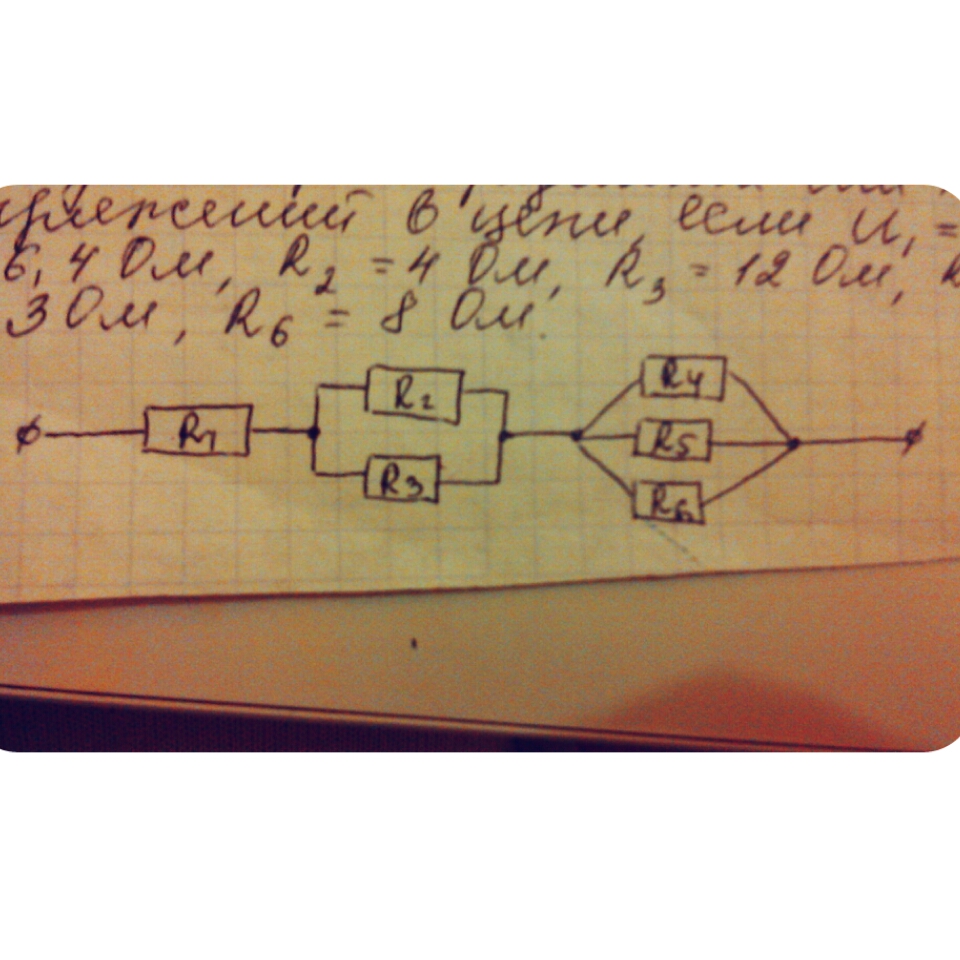 в цепи, если U₁ =
6,4 Ом, R₂ = 4 Ом, R₃ = 12 Ом,
3 Ом, R₆ = 8 Ом.
R₁ R₂ R₃ R₄ R₅ R₆